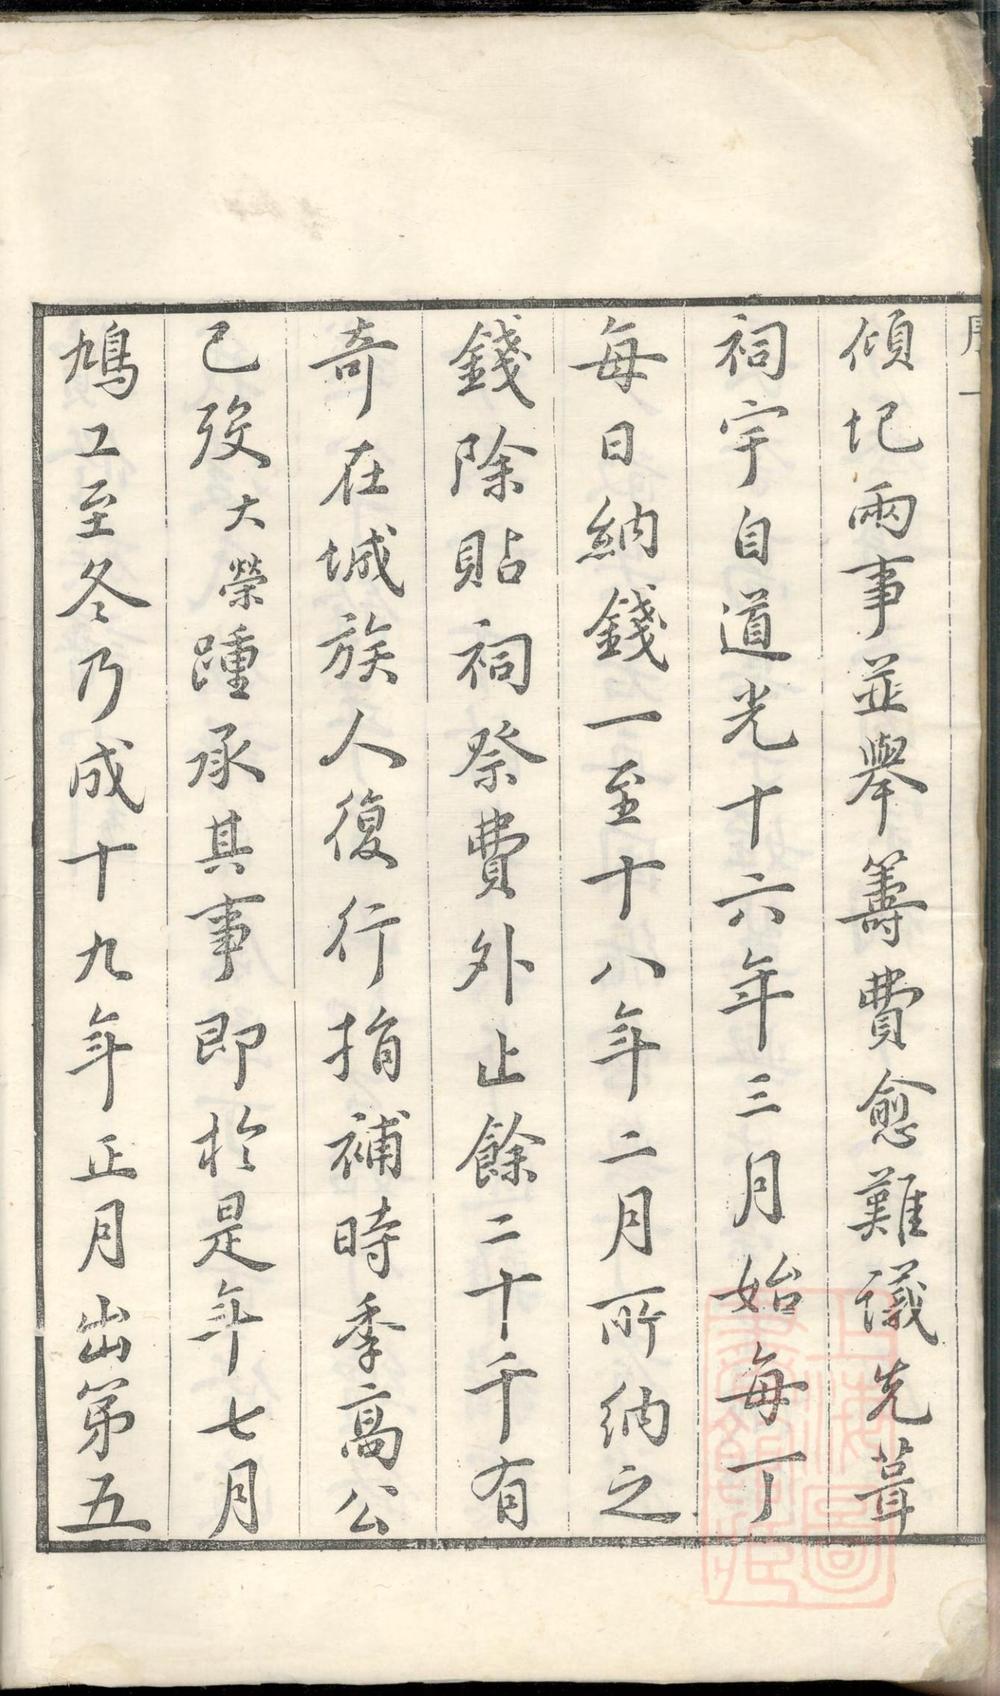 序
傾圮兩事並舉籌費愈難議先葺
祠宇自道光十六年三月始每丁
每日納錢一至十八年二月所納之
錢除貼祠祭費外止餘二十千有
奇在城族人復行捐補時季高公
已歿大榮踵承其事即於是年七月
鳩工至冬乃成十九年正月出第五